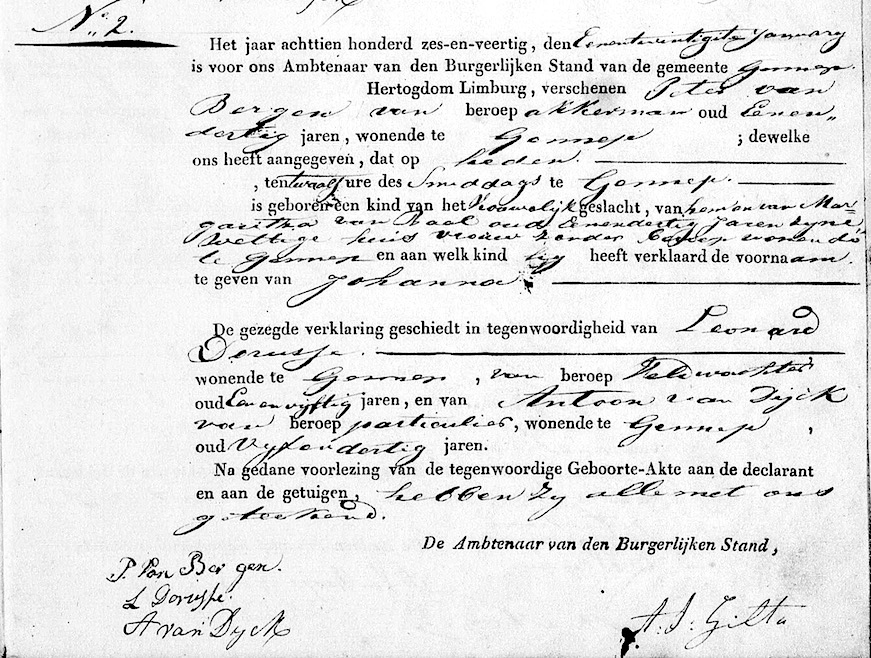 No. 2.
Het jaar achttien honderd zes-en-veertig, den Eenentwintigste January
is voor ons Ambtenaar van den Burgerlijken Stand van de gemeente Gennep
Hertogdom Limburg, verschenen Peter van
Bergen van beroep akkerman oud Eenen-
dertig jaren, wonende te Gennep ; dewelke
ons heeft aangegeven, dat op heden.
, ten twaalf ure des Smiddags te Gennep.
is geboren een kind van het Vrouwelijk geslacht, van hem en van Mar-
garitha van Baal oud Eenendertig Jaren zyne
Wettige huis vrouw zonder beroep wonende
te Gennep en aan welk kind hy heeft verklaard de voornaam.
te geven van Johanna
De gezegde verklaring geschiedt in tegenwoordigheid van Leonard
Derusse.
wonende te Gennep, van beroep Veldwachter
oud Eenenvyftig jaren, en van Antoon van Dijck
van beroep particulier, wonende te Gennep ,
oud Vyfendertig jaren.
Na gedane voorlezing van de tegenwoordige Geboorte-Akte aan de declarant
en aan de getuigen, hebben zy alle met ons
geteekend.
De Ambtenaar van den Burgerlijken Stand,
P. Van Bergen.
L Dorusse.
A van Dyck
A. J. Gilta